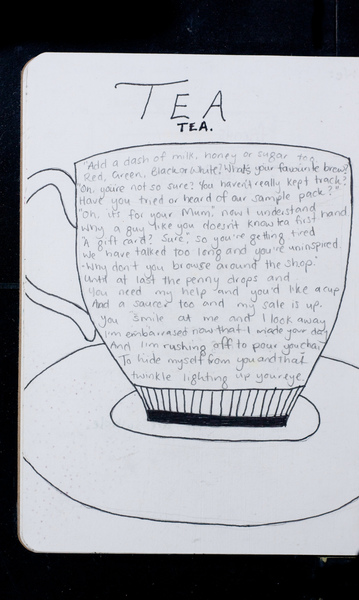 TEA
TEA.
"Add a dash of milk, honey or sugar too
Red, Green, Black or White? What's your favourite brew?
"Oh, you're not so sure? You haven't really kept track?
Have you tried or heard of our sample pack?"
"Oh, it's for your Mum, now I understand
Why a guy like you doesn't know tea first hand
A gift card? Sure," so you're getting tired
We have talked too long and you're uninspired.
"Why don't you browse around the shop."
Until at last the penny drops and
You need my help and you'd like a cup
And a saucer too and my sale is up.
You smile at me and I look away
I'm embarrased now that I made your day
And I'm rushing off to pour you chai
To hide myself from you and that
twinkle lighting up your eye.